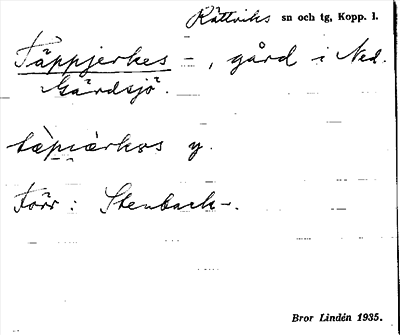 Rättviks sn och tg, Kopp. l.
Täppjerkes –, gård i Ned.
Gärdsjö.
tæ̀pıærkəs y.
Förr : Stenback–.
Bror Lindén 1935.